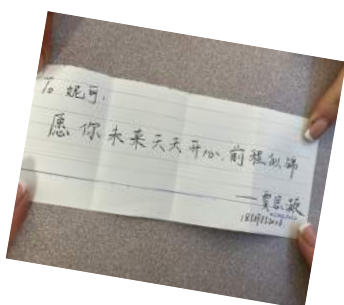 To 妮可,
愿你未来天天开心,前程似锦